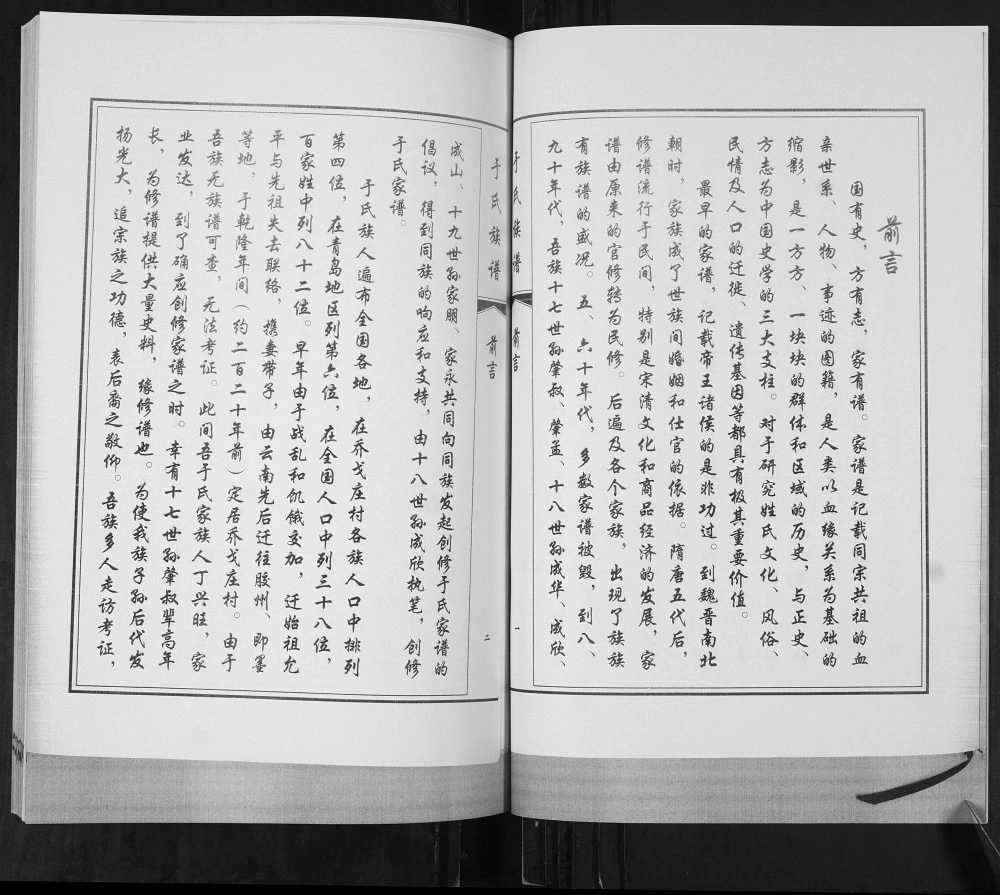 前言
国有史，方有志，家有谱。家谱是记载同宗共祖的血
亲世系、人物、事迹的图籍，是人类以血缘关系为基础的
缩影，是一方方、一块块的群体和区域的历史，与正史、
方志为中国史学的三大支柱。对于研究姓氏文化、风俗、
民情及人口的迁徙、遗传基因等都具有极其重要价值。
最早的家谱，记载帝王诸侯的是非功过。到魏晋南北
朝时，家族成了世族间婚姻和仕官的依据。隋唐五代后，
修谱流行于民间，特别是宋清文化和商品经济的发展，家
谱由原来的官修转为民修。后遍及各个家族，出现了族族
有族谱的盛况。五、六十年代，多数家谱被毁，到八、
九十年代，吾族十七世孙肇叔、肇孟、十八世孙成华、成欣、
于氏族谱
前言
一
于氏族谱
前言
二
成山、十九世孙家明、家永共同向同族发起创修于氏家谱的
倡议，得到同族的响应和支持，由十八世孙成欣执笔，创修
于氏家谱。
于氏族人遍布全国各地，在乔戈庄村各族人口中排列
第四位，在青岛地区列第六位，在全国人口中列三十八位，
百家姓中列八十二位。早年由于战乱和饥饿交加，迁始祖允
平与先祖失去联络，携妻带子，由云南先后迁往胶州、即墨
等地，于乾隆年间（约二百二十年前）定居乔戈庄村。由于
吾族无族谱可查，无法考证。此间吾于氏家族人丁兴旺，家
业发达，到了确应创修家谱之时。幸有十七世孙肇叔辈高年
长，为修谱提供大量史料，缘修谱也。为使我族子孙后代发
扬光大，追宗族之功德，表后裔之敬仰。吾族多人走访考证，